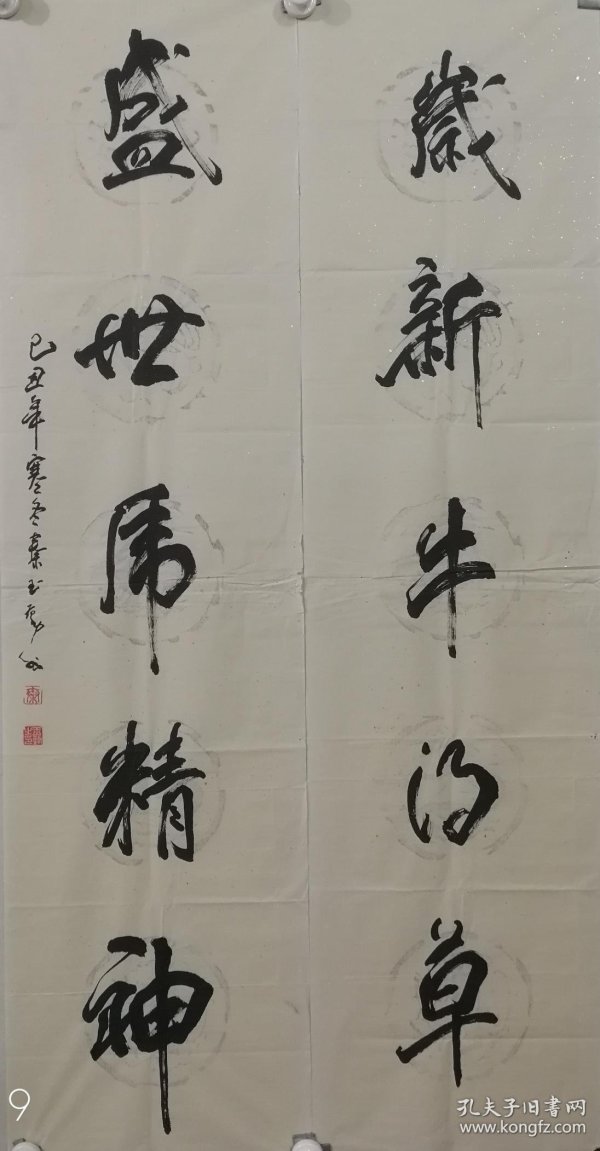 歲新牛得草
盛世虎精神
己丑年寒冬秦玉
9
孔夫子旧書网
www.kongfz.com